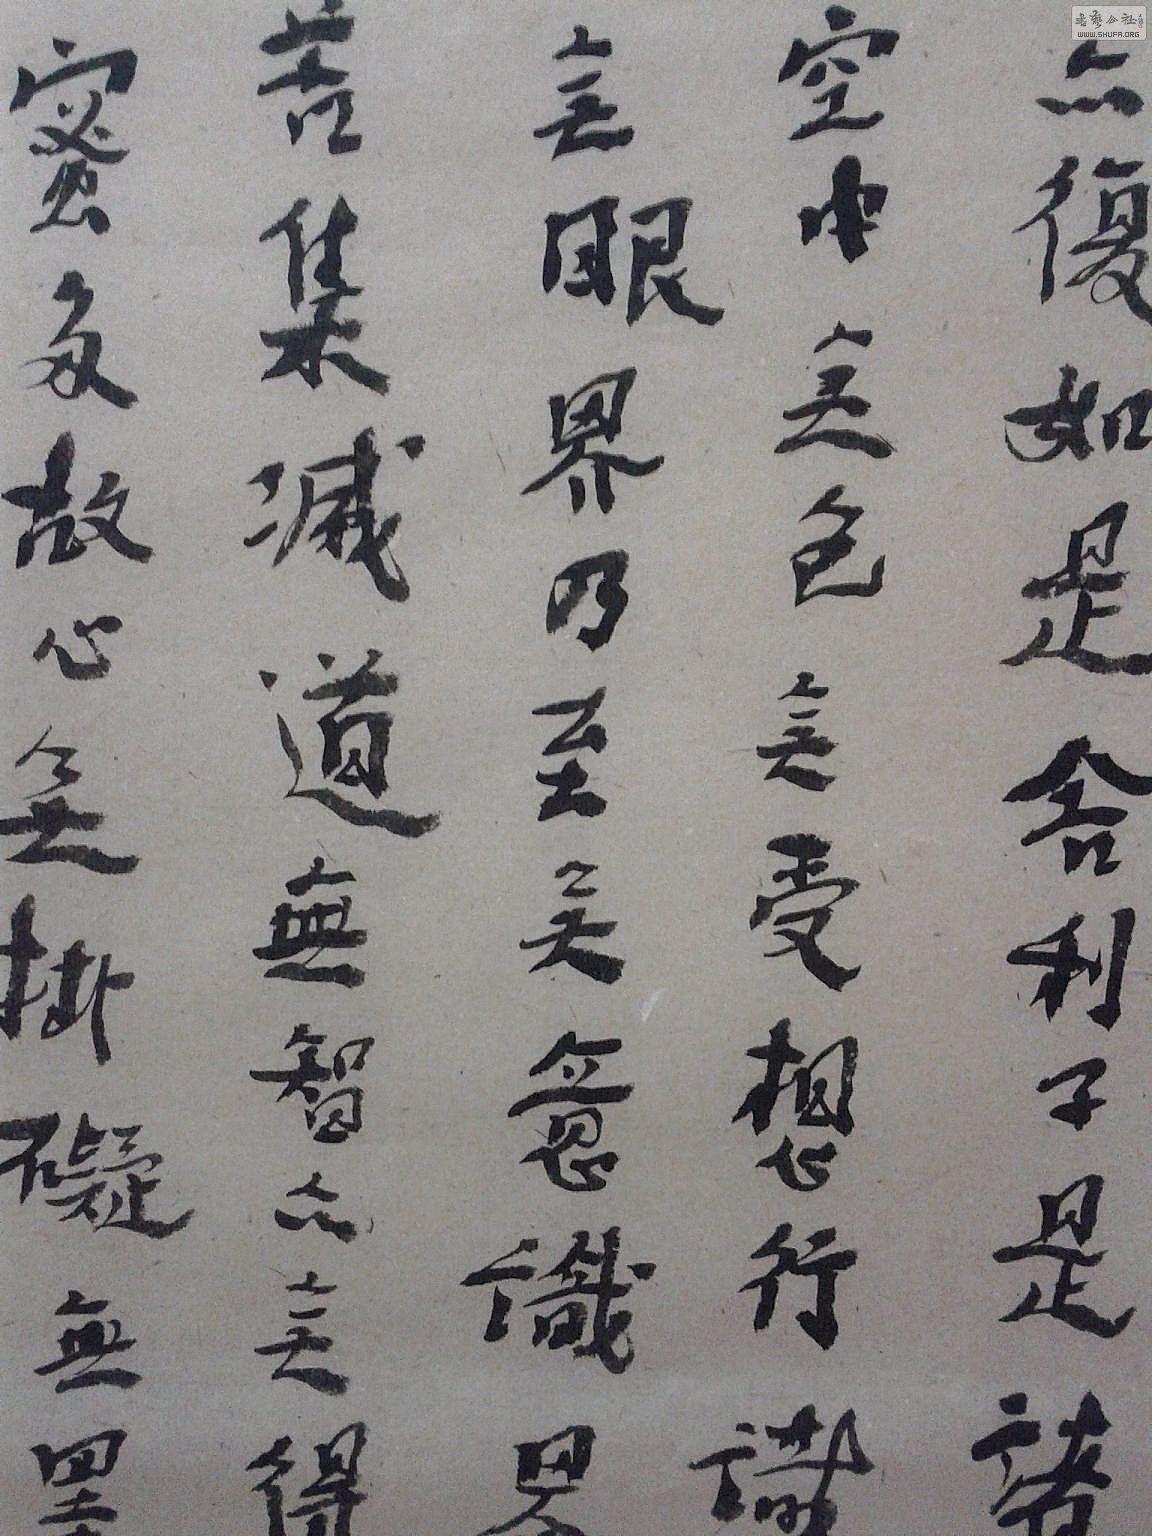 亦復如是舍利子是諸
空中無色無受想行識
無眼界乃至無意識界
苦集滅道無智亦無得
蜜多故心無掛礙無罣
書藝公社
WWW.SHUFA.ORG